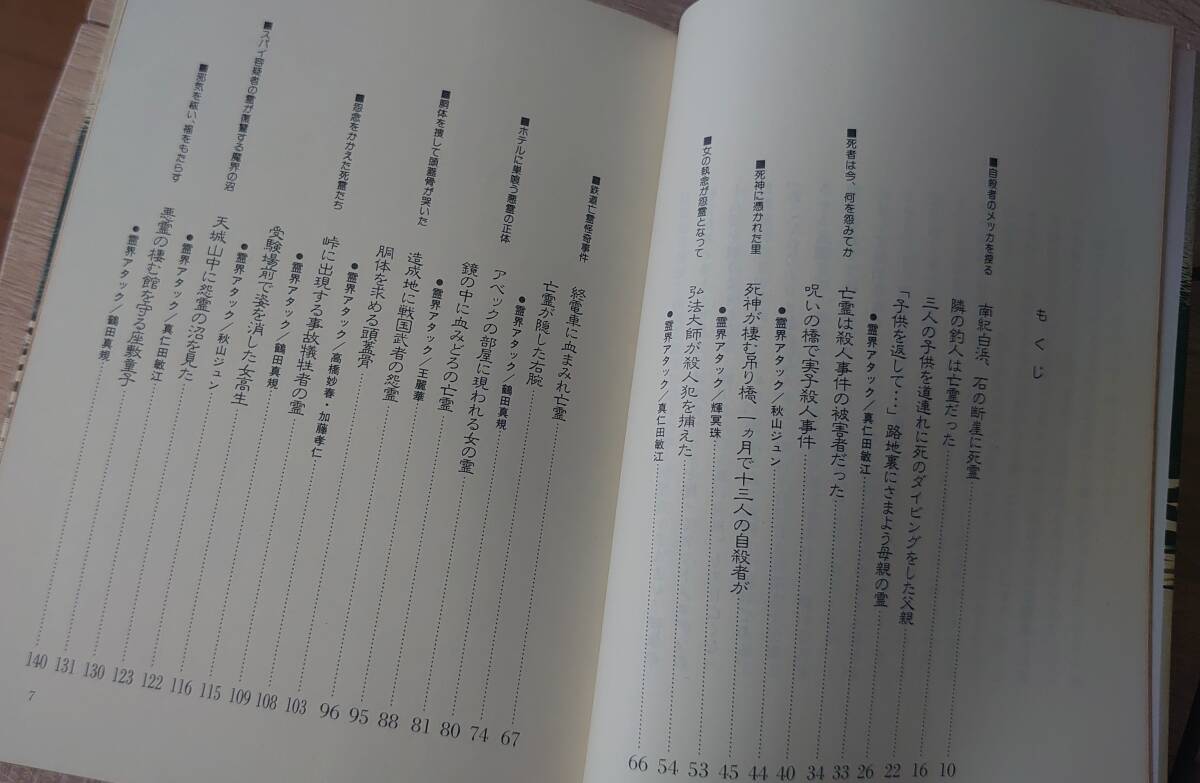 もくじ
■自殺者のメッカを探る
南紀白浜、石の断崖に死霊……10
隣の釣人は亡霊だった……16
三人の子供を道連れに死のダイビングをした父親……22
「子供を返して…」路地裏にさまよう母親の霊……26
●霊界アタック／真仁田敏江……33
■死者は今、何を怨みてか
亡霊は殺人事件の被害者だった……34
呪いの橋で実子殺人事件……40
●霊界アタック／秋山ジュン……44
■死神に憑かれた里
死神が棲む吊り橋、一ヵ月で十三人の自殺者が……45
●霊界アタック／輝冥珠……53
■女の執念が怨霊となって
弘法大師が殺人犯を捕えた……54
●霊界アタック／真仁田敏江……66
■鉄道亡霊怪奇事件
終電車に血まみれ亡霊……67
亡霊が隠した右腕……74
●霊界アタック／鶴田真規……80
■ホテルに巣喰う悪霊の正体
アベックの部屋に現われる女の霊……81
鏡の中に血みどろの亡霊……88
●霊界アタック／王麗華……95
■胴体を捜して頭蓋骨が哭いた
造成地に戦国武者の怨霊……96
胴体を求める頭蓋骨……103
●霊界アタック／高橋妙春・加藤孝仁……108
■怨念をかかえた死霊たち
峠に出現する事故犠牲者の霊……109
●霊界アタック／鶴田真規……115
受験場前で姿を消した女高生……116
●霊界アタック／秋山ジュン……122
■スパイ容疑者の霊が復讐する魔界の沼
天城山中に怨霊の沼を見た……123
●霊界アタック／真仁田敏江……130
■邪気を祓い、福をもたらす
悪霊の棲む館を守る座敷童子……131
●霊界アタック／鶴田真規……140
7